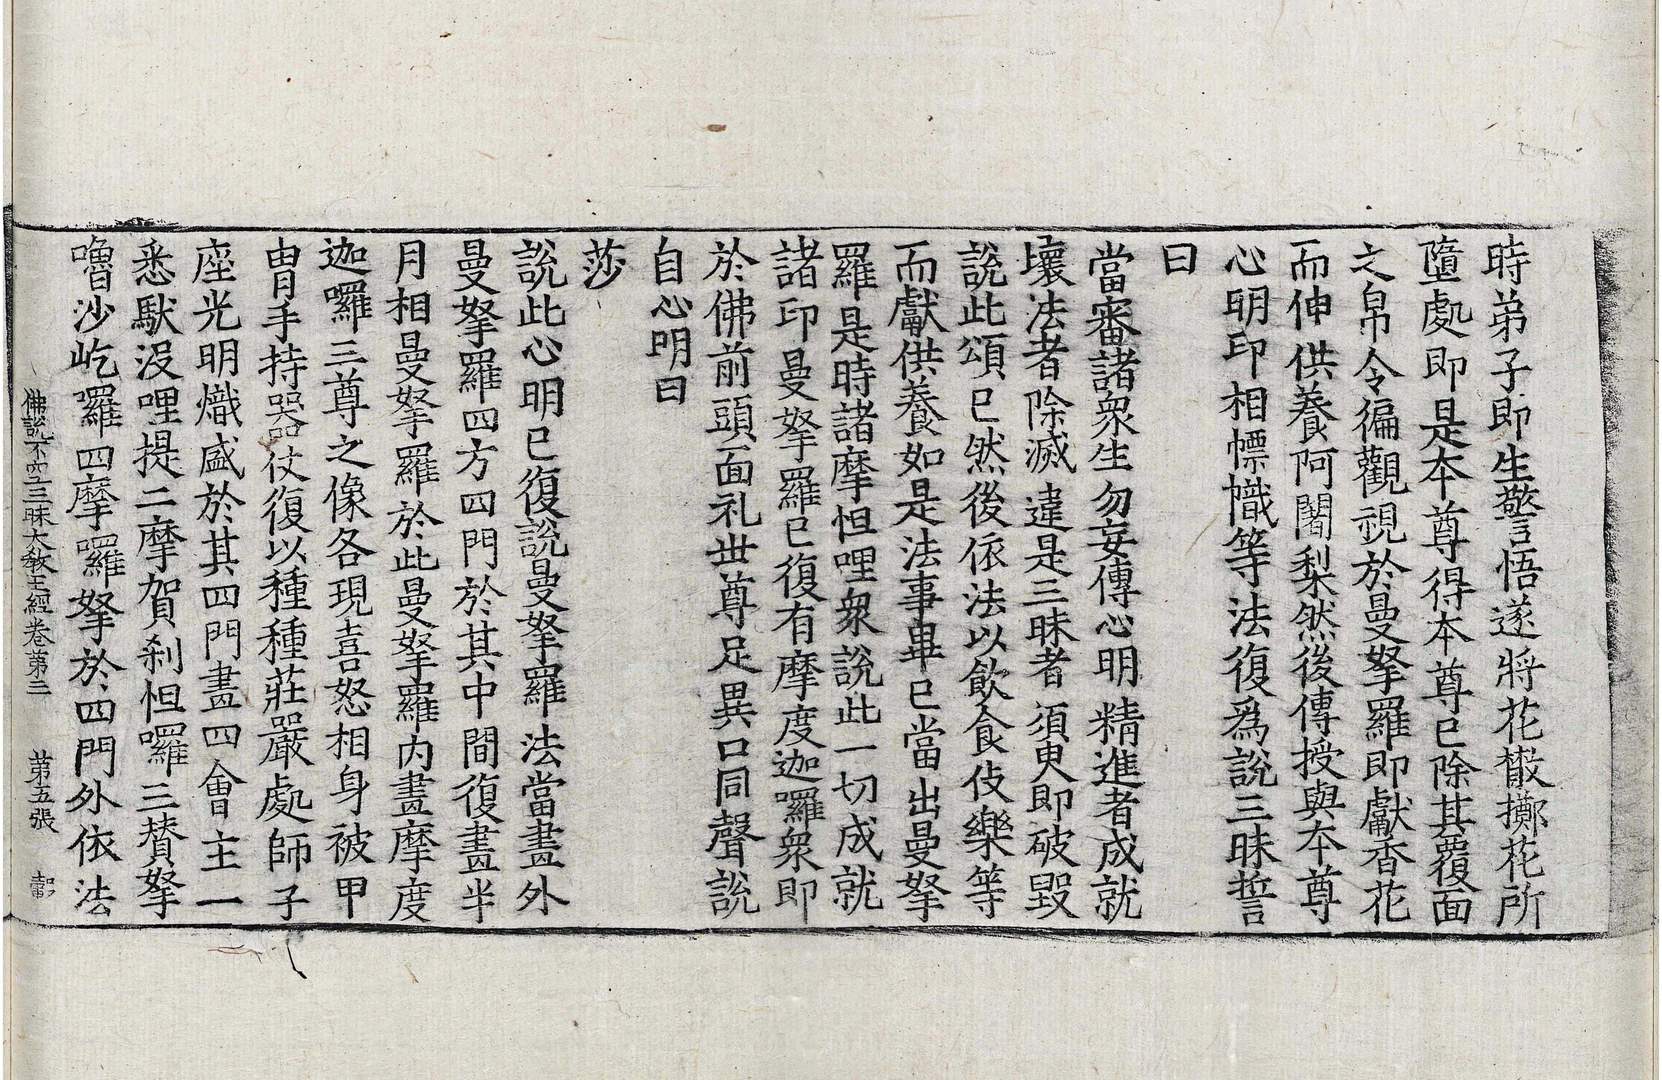 時弟子即生警悟遂將花𣫍擲花所
墮處即是本尊得本尊已除其覆面
之帛令徧觀視於曼拏羅即獻香花
而伸供養阿闍梨然後傳授與本尊
心明印相幖幟等法復爲說三昧誓
曰
當審諸衆生勿妄傳心明精進者成就
壞法者除滅違是三昧者須臾即破毀
說此頌已然後依法以飲食伎樂等
而獻供養如是法事畢已當出曼拏
羅是時諸摩怛哩衆說此一切成就
諸印曼拏羅已復有摩度迦囉衆即
於佛前頭面礼世尊足異口同聲說
自心明曰
莎
說此心明已復說曼拏羅法當畫外
曼拏羅四方四門於其中間復畫半
月相曼拏羅於此曼拏羅内畫摩度
迦囉三尊之像各現喜怒相身被甲
冑手持器仗復以種種莊嚴處師子
座光明熾盛於其四門畫四會主一
悉馱沒哩提二摩賀刹怛囉三賛拏
嚕沙屹囉四摩囉拏於四門外依法
佛說不空三昧大教王經卷第三　第五張